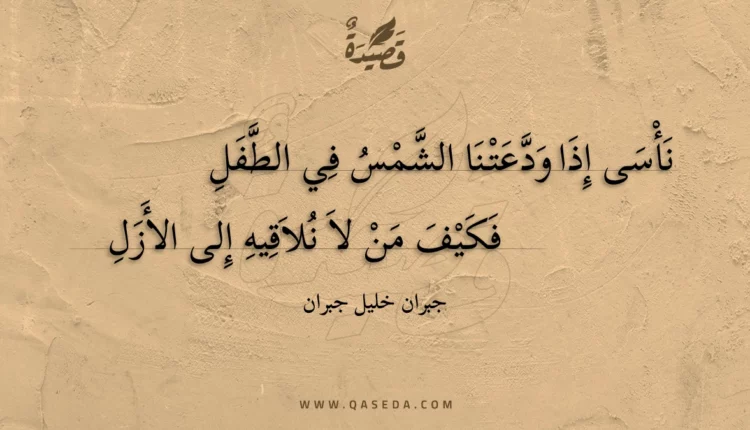 قَصِيدَةٌ
نَأْسَى إِذَا وَدَّعَتْنَا الشَّمْسُ فِي الطَّفَلِ
فَكَيْفَ مَنْ لاَ نُلاَقِيهِ إِلى الأَزَلِ
جبران خليل جبران
WWW.QASEDA.COM